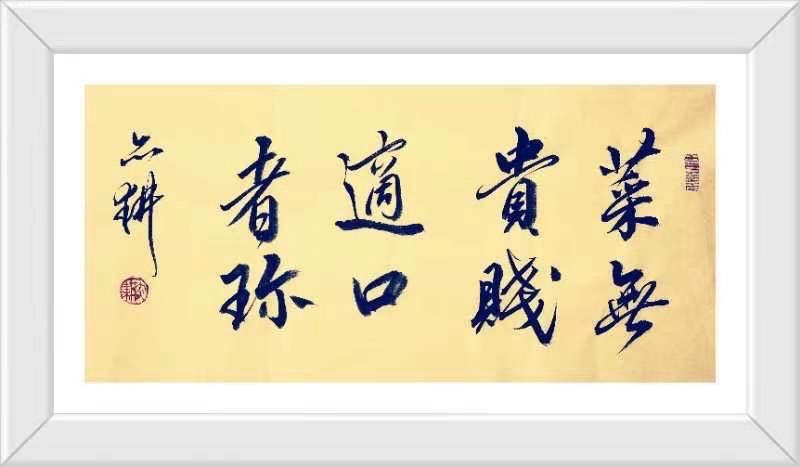 菜無
貴賤
適口
者珍
耕